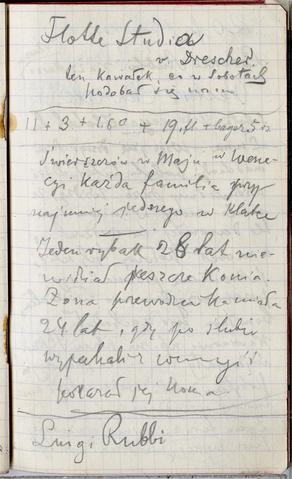 Flotte Studio
v. Drescher.
ten kawałek, co w Sobotach
podobał się nam
11 + 3 + 1.60 + 19. fl +
Świerszczów w Maju w Wene-
cyi każda familia przy
najmniej jednego w klatce
Jeden rybak 28 lat nie
widział jeszcze Konia.
Żona przewodnika miała
24 lat, gdy po ślubie
wyjechali z
pokazał jej Konia.
Luigi Rubbi